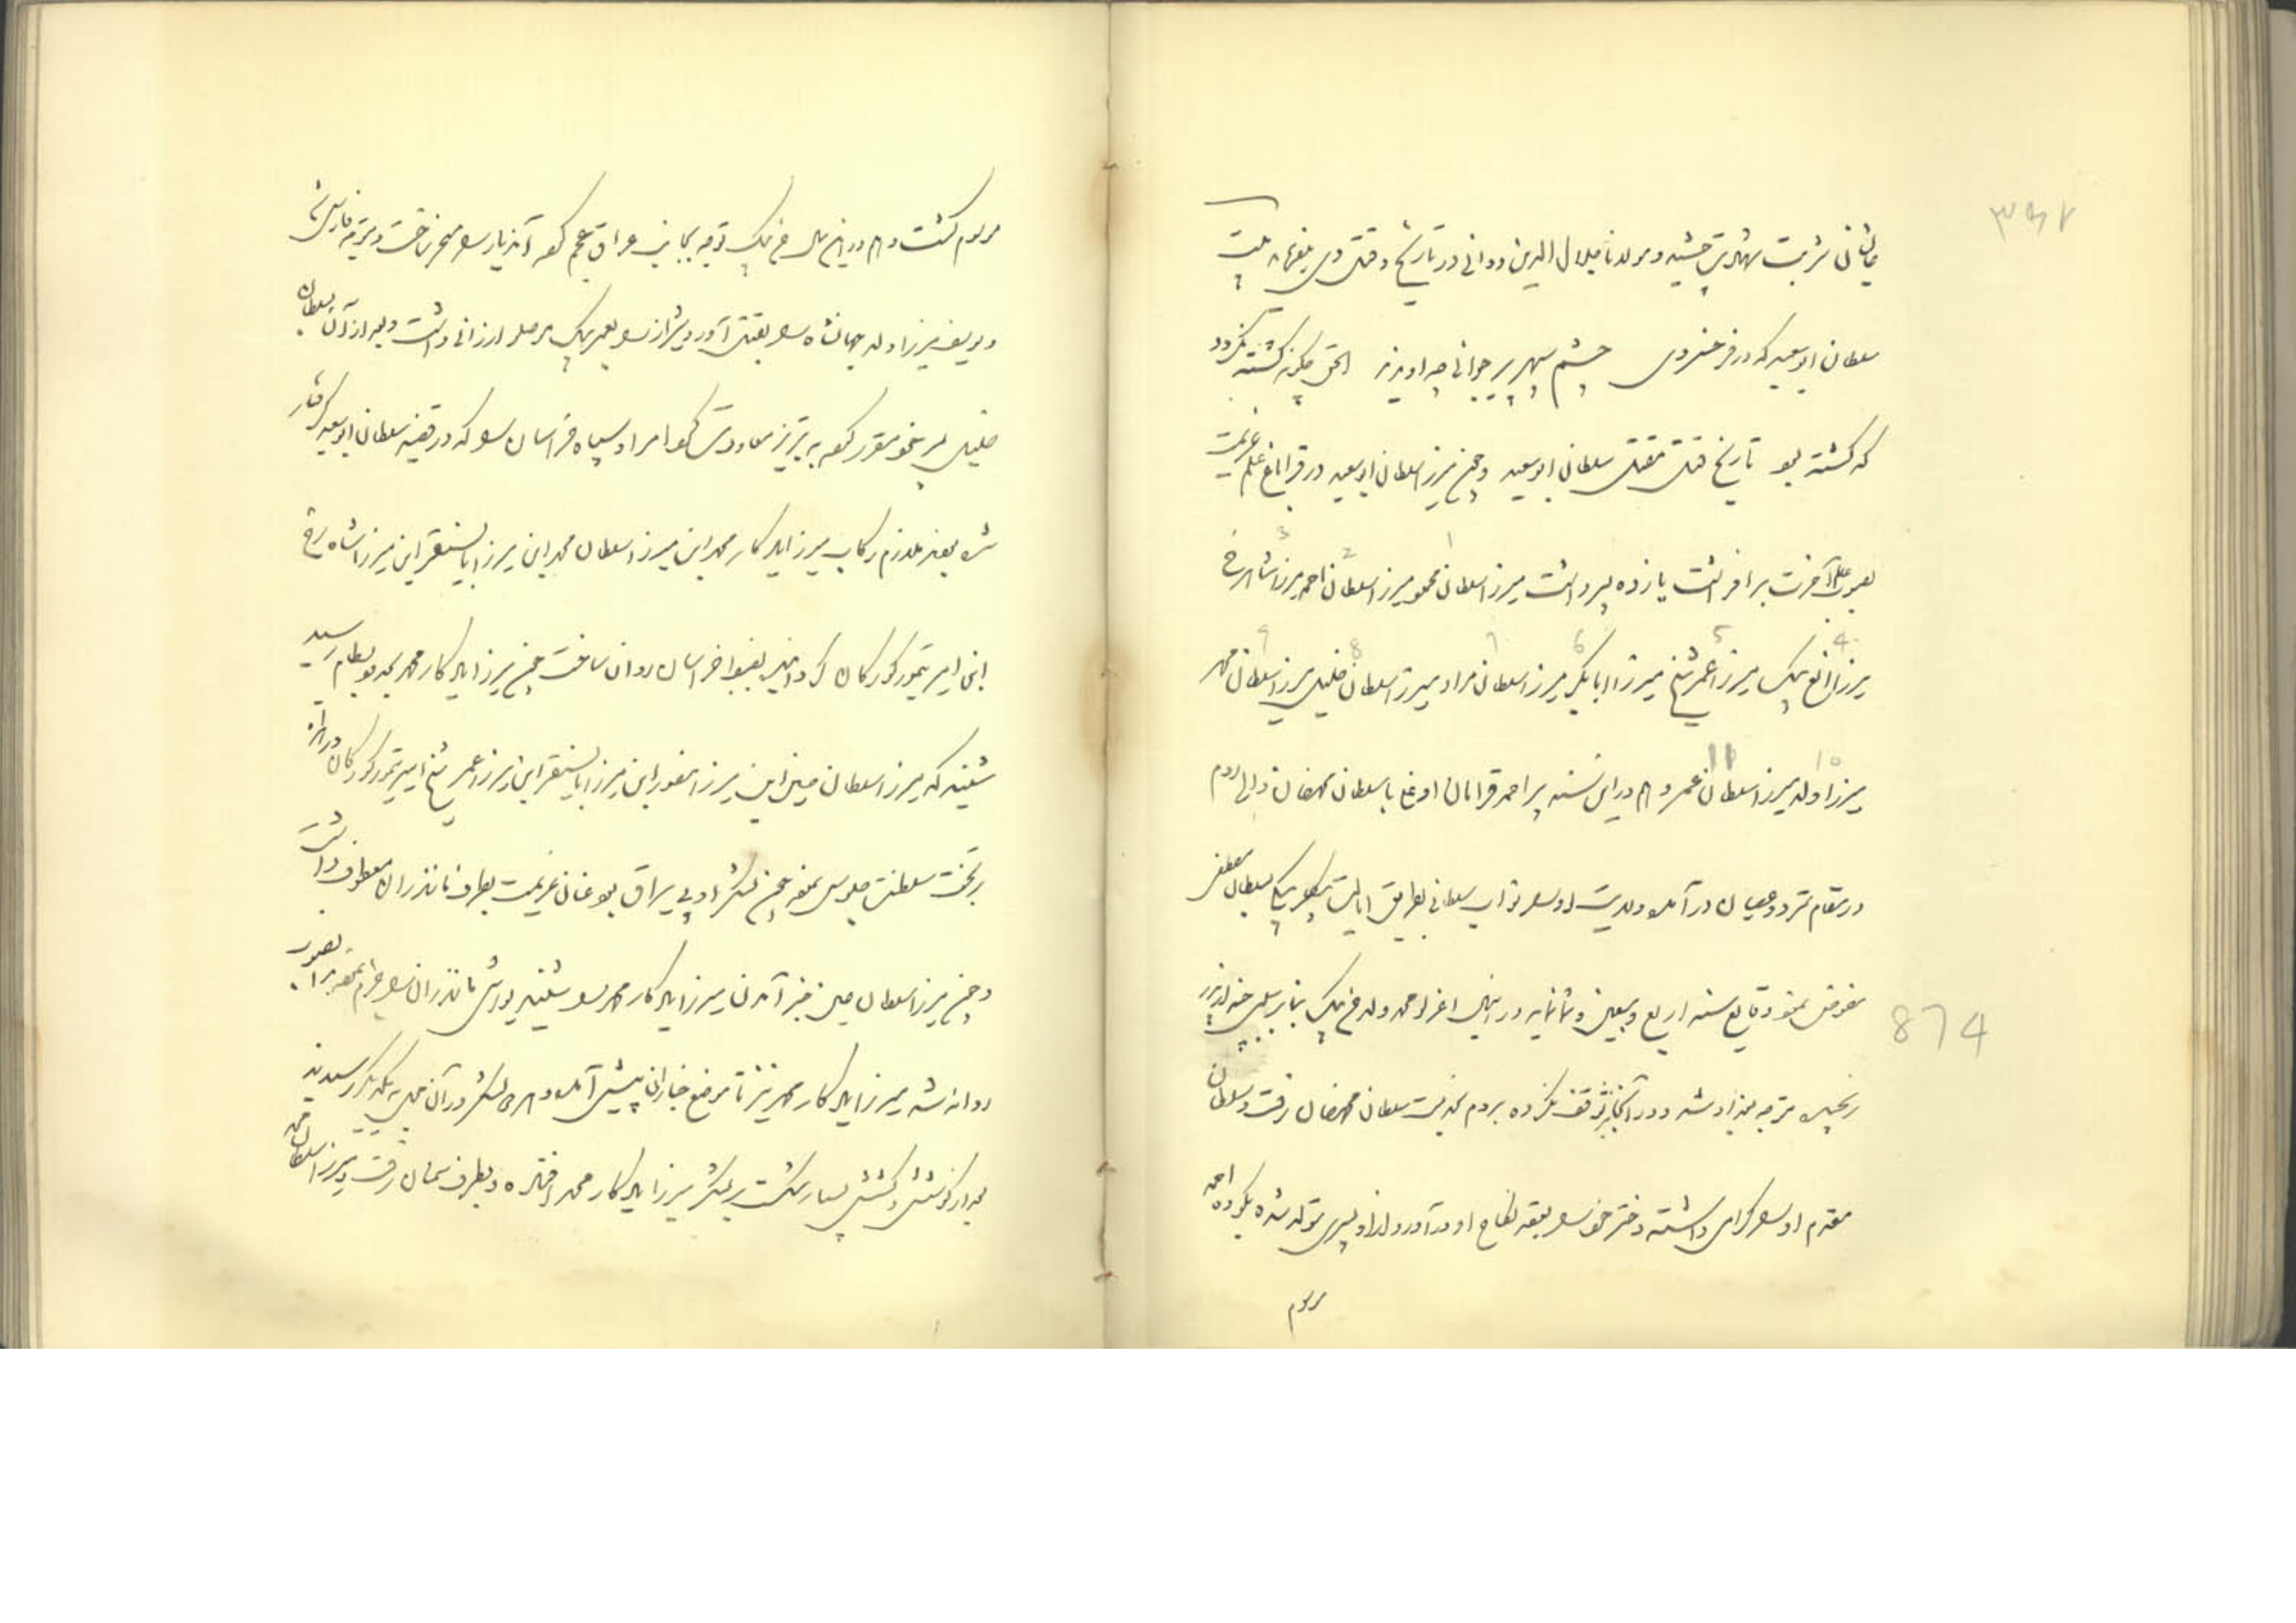 ۳۶۷
فانی شربت شهادت چشیده و مولانا جلال الدین دوانی در تاریخ و قتل وی
سلطان ابوسعید که در فر خسروی چشم سپهر پیر جوانی چو او ندید الحق چگونه کشته نگردد
که گشته بود تاریخ قتل مقتل سلطان ابوسعید و چون میرزا سلطان ابوسعید در قراباغ علم عزیمت
بصوب عالم آخرت برافراشت یازده پسر داشت میرزا سلطان محمود میرزا سلطان احمد میرزا شاهرخ
1 2 3
میرزا الغ بیک میرزا عمر شیخ میرزا ابابکر میرزا سلطان مراد میرزا سلطان خلیل میرزا سلطان محمد
4 5 6 7 8 9
میرزا ولد میرزا سلطان عمر و هم در این سنه پیر احمد قرامان اوغلی با سلطان محمد خان والی روم
10 11
در مقام تمرد و عصیان در آمده ولایت او را نواب سلطانی بطریق ایالت بیکلربیکی بسلطان مصطفی
مفوض نمود وقایع سنه اربع و سبعین و ثمانمایه در این سال اغرلو محمد ولد حسن بیک بنابر سلی از پدر
874
رنجیده متوجه بغداد شد و در آنجا نیز توقف نکرده بروم بخدمت سلطان محمد خان رفت و سلطان
مقدم او را گرامی داشته دختر خود را بعقد نکاح او در آورد و از او پسری متولد شده بکوده احمد
مرسوم
مرسوم گشت و هم در این سال حسن بیک توجه بجانب عراق عجم کرده آندیار را مسخر ساخت و متوجه فارس شد
و یوسف میرزا ولد جهانشاه را بقتل آورد و شیراز را بعمر بیک موصلو ارزانی داشت و بعد از آن بسلطان
خلیل پسر خود مقرر کرده به تبریز معاودت کرد امرا و سپاه خراسان را که در قضیه سلطان ابوسعید گرفتار
شده بودند ملازم رکاب میرزا یادگار محمد ابن میرزا سلطان محمد ابن میرزا بایسنقر ابن میرزا شاهرخ
ابن امیر تیمور کورکان کردانیده بضبط خراسان روان ساخت چون میرزا یادگار محمد بحدود بسطام رسید
شنید که میرزا سلطان حسین ابن میرزا منصور ابن میرزا بایقرا ابن میرزا عمر شیخ امیر تیمور کورکان در هراة
بر تخت سلطنت جلوس نموده چون لشکر او بی یراق بود عنان عزیمت بطرف مازندران معطوف داشت
و چون میرزا سلطان حسین خبر آمدن میرزا یادگار محمد را شنید یورش مازندران را جزم نموده بدانصوب
روانه شد میرزا یادگار محمد نیز تا موضع خباران پیش آمده و هر دو لشکر در آن محل به یکدیگر رسیدند
بعد از کوشش و کشش بسیار شکست بر لشکر میرزا یادگار محمد افتاده و بطرف سمنان رفت و میرزا سلطان محمد